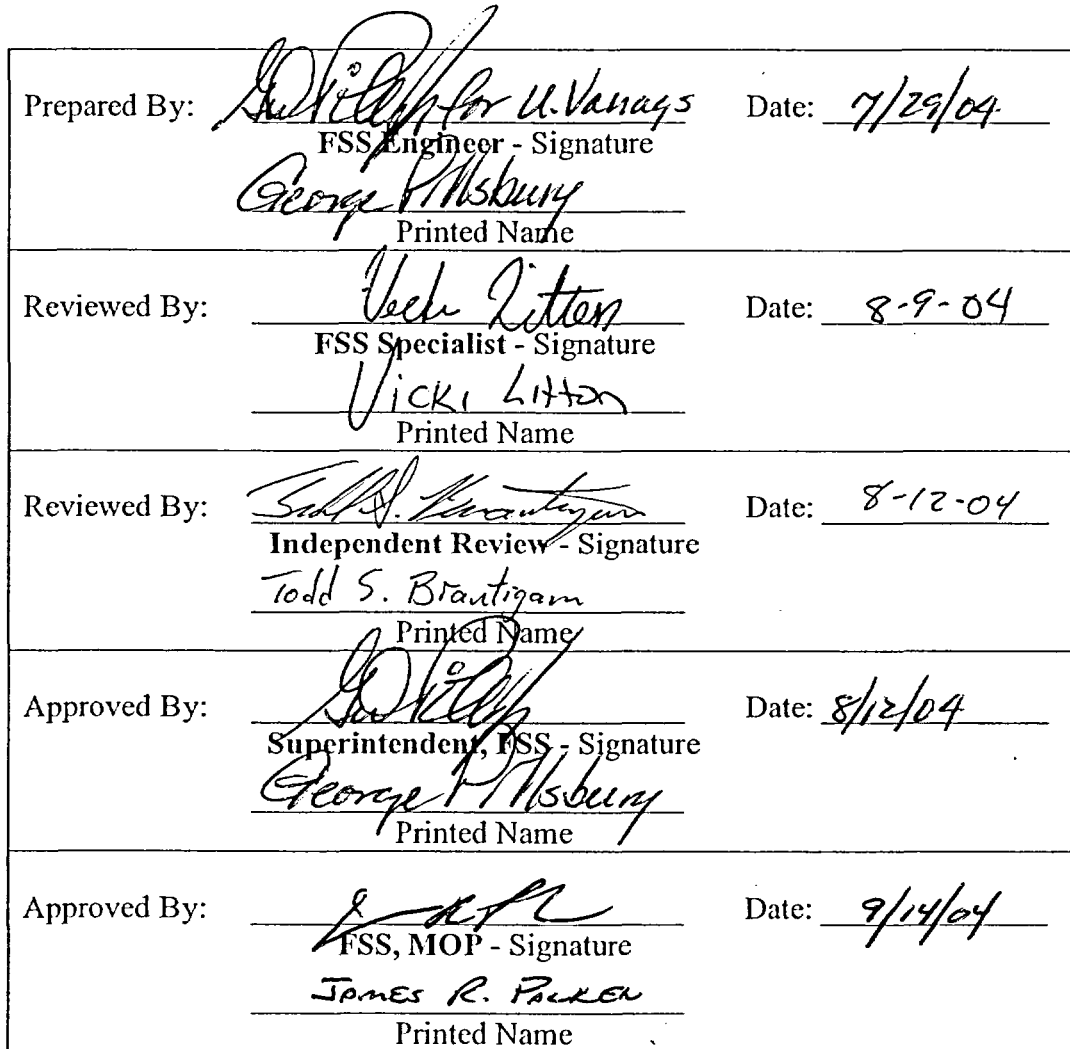 Prepared By: for U. Vanags Date: 7/29/04
FSS Engineer - Signature
George Pillsbury
Printed Name
Reviewed By: Vicki Litton Date: 8-9-04
FSS Specialist - Signature
Vicki Litton
Printed Name
Reviewed By: Todd S. Brautigam Date: 8-12-04
Independent Review - Signature
Todd S. Brautigam
Printed Name
Approved By: Date: 8/12/04
Superintendent, FSS - Signature
George Pillsbury
Printed Name
Approved By: Date: 9/14/04
FSS, MOP - Signature
James R.
Printed Name